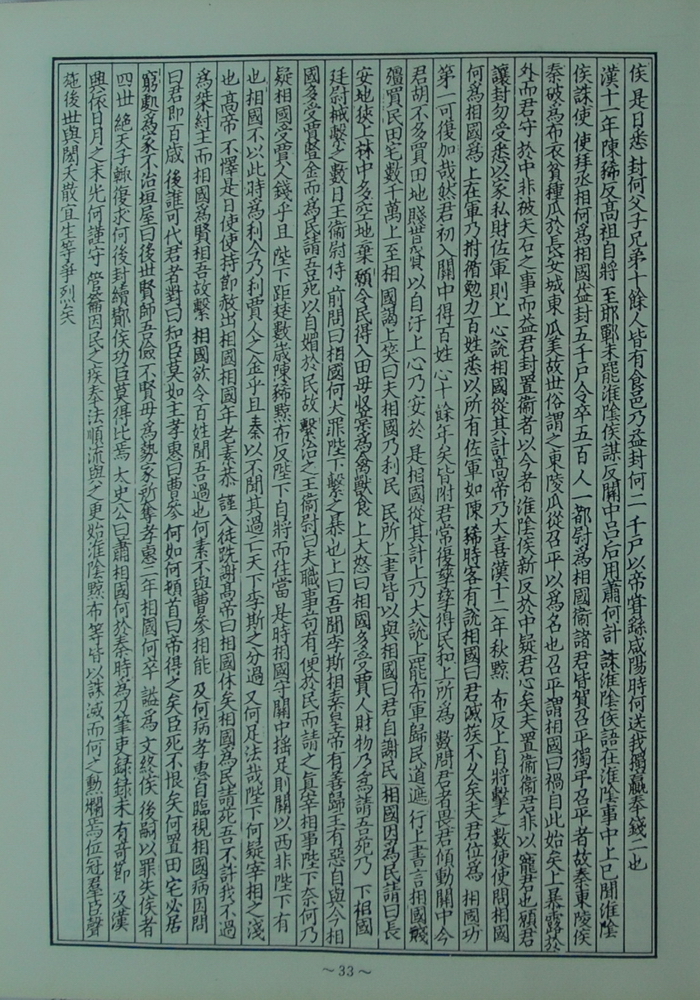 侯是日悉封何父子兄弟十餘人皆有食邑乃益封何二千戶以帝嘗繇咸陽時何送我獨贏奉錢二也
漢十一年陳豨反高祖自將至邯鄲未罷淮陰侯謀反關中呂后用蕭何計誅淮陰侯語在淮陰事中上已聞淮陰
侯誅使使拜丞相何爲相國益封五千戶令卒五百人一都尉爲相國衞諸君皆賀召平獨弔召平者故秦東陵侯
秦破爲布衣貧種瓜於長安城東瓜美故世俗謂之東陵瓜從召平以爲名也召平謂相國曰禍自此始矣上暴露於
外而君守於中非被矢石之事而益君封置衞者以今者淮陰侯新反於中疑君心矣夫置衞衞君非以寵君也願君
讓封勿受悉以家私財佐軍則上心說相國從其計高帝乃大喜漢十二年秋黥布反上自將擊之數使使問相國
何爲相國爲上在軍乃拊循勉力百姓悉以所有佐軍如陳豨時客有說相國曰君滅族不久矣夫君位爲相國功
第一可復加哉然君初入關中得百姓心十餘年矣皆附君常復孳孳得民和上所爲數問君者畏君傾動關中今
君胡不多買田地賤貰貸以自汙上心乃安於是相國從其計上乃大說上罷布軍歸民道遮行上書言相國賤
彊買民田宅數千萬上至相國謁上笑曰夫相國乃利民民所上書皆以與相國曰君自謝民相國因爲民請曰長
安地狹上林中多空地棄願令民得入田毋收稾爲禽獸食上大怒曰相國多受賈人財物乃爲請吾苑乃下相國
廷尉械繫之數日王衞尉侍前問曰相國何大罪陛下繫之暴也上曰吾聞李斯相秦皇帝有善歸主有惡自與今相
國多受賈豎金而爲民請吾苑以自媚於民故繫治之王衞尉曰夫職事苟有便於民而請之眞宰相事陛下柰何乃
疑相國受賈人錢乎且陛下距楚數歲陳豨黥布反陛下自將而往當是時相國守關中搖足則關以西非陛下有
也相國不以此時爲利今乃利賈人之金乎且秦以不聞其過亡天下李斯之分過又何足法哉陛下何疑宰相之淺
也高帝不懌是日使使持節赦出相國相國年老素恭謹入徒跣謝高帝曰相國休矣相國爲民請苑吾不許我不過
爲桀紂主而相國爲賢相吾故繫相國欲令百姓聞吾過也何素不與曹參相能及何病孝惠自臨視相國病因問
曰君即百歲後誰可代君者對曰知臣莫如主孝惠曰曹參何如何頓首曰帝得之矣臣死不恨矣何置田宅必居
窮處爲家不治垣屋曰後世賢師吾儉不賢毋爲勢家所奪孝惠二年相國何卒諡爲文終侯後嗣以罪失侯者
四世絕天子輒復求何後封續酇侯功臣莫得比焉太史公曰蕭相國何於秦時爲刀筆吏錄錄未有奇節及漢
興依日月之末光何謹守管籥因民之疾奉法順流與之更始淮陰黥布等皆以誅滅而何之勳爛焉位冠羣臣聲
施後世與閎夭散宜生等爭烈矣
~33~